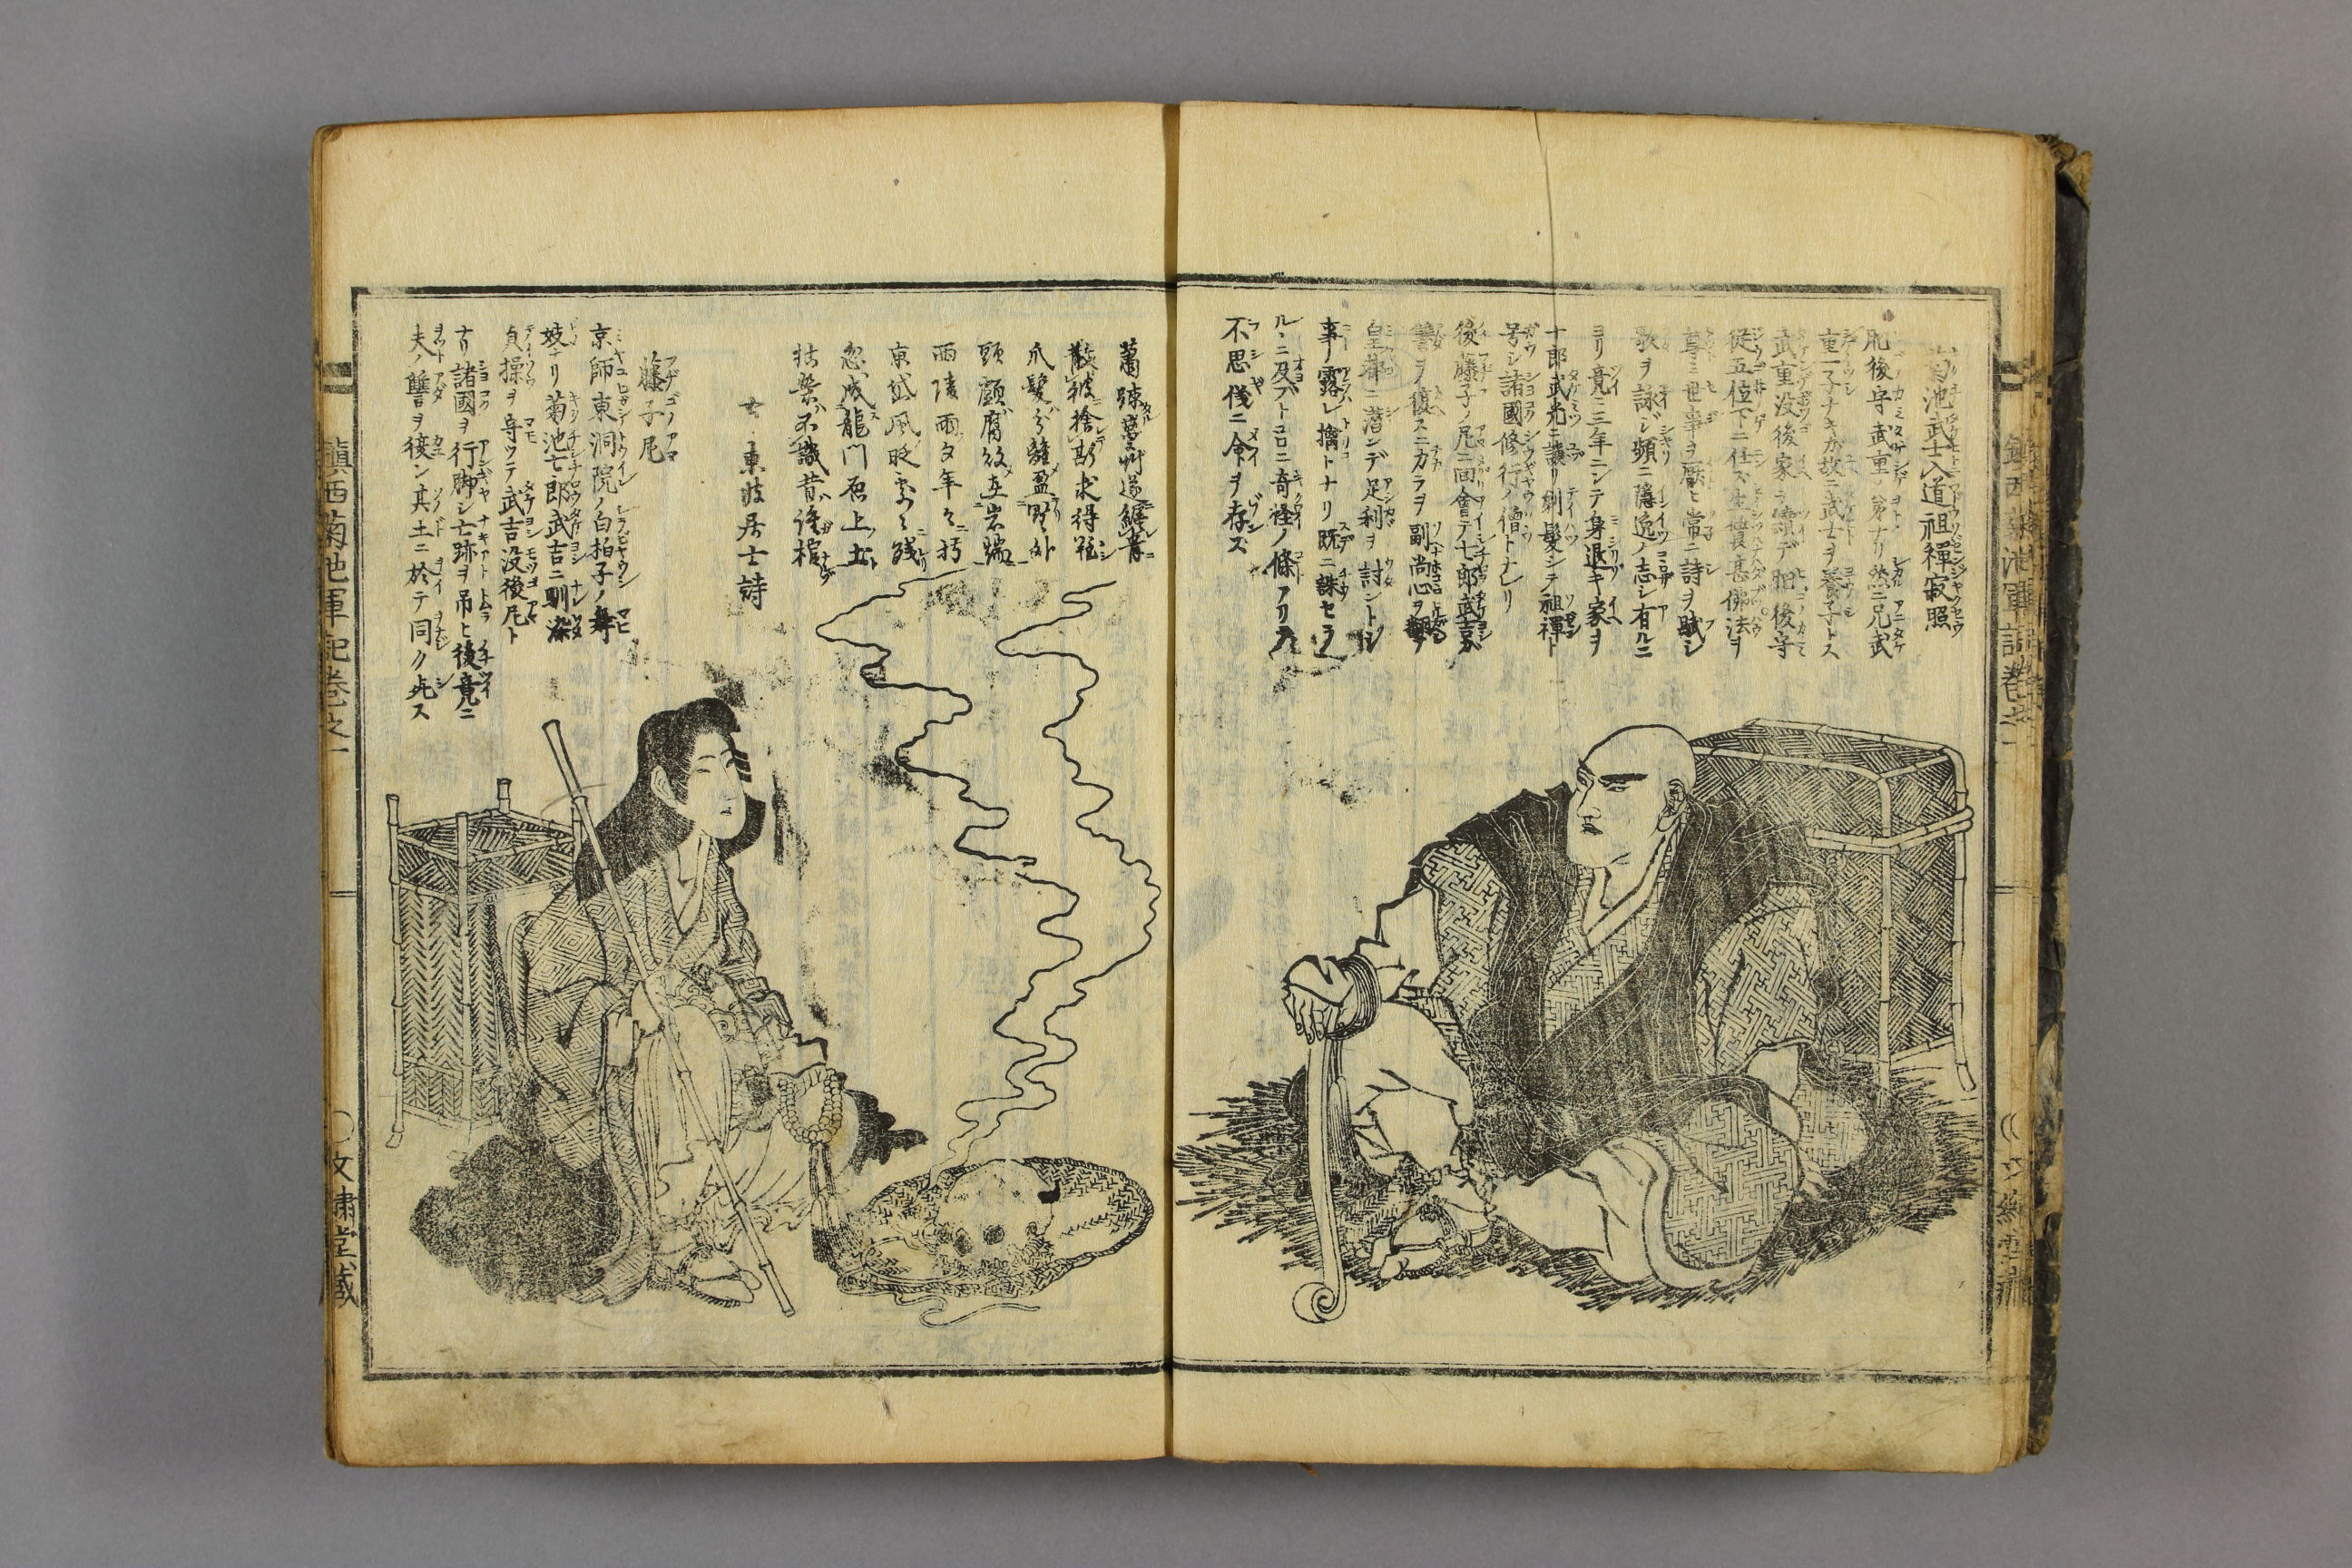 菊池武士入道祖禪寂照
肥後守武重ノ弟ナリ然ニ兄武
重一子ナキカ故ニ武士ヲ養子トス
武重没後家ヲ續デ肥後守
從五位下ニ任ズ生質甚佛法ヲ
尊ミ世事ヲ厭ヒ常ニ詩ヲ賦シ
歌ヲ詠ジ頻ニ隱逸ノ志シ有ルニ
ヨリ竟ニ三年ニシテ身退キ家ヲ
十郎武光ニ讓リ剃髮シテ祖禪ト
号シ諸國修行ノ僧トナレリ
後藤子ノ尼ニ面會テ七郎武吉ガ
讐ヲ復スニカラヲ副尚心ヲ
皇都ニ潜ンデ足利ヲ討ントシ
事露レ擒トナリ既ニ誅セラ
ルヽニ及ブトコロニ奇怪ノ條アリテ
不思儀ニ命ヲ存ス
散被捨
爪髮分離盈野外
頭顱腐敗在岩端
雨
東岱風
忽成龍門石上土
枯骨不識昔誰棺
東坡居士詩
藤子尼
京師東洞院ノ白拍子ノ舞
妓ナリ菊池七郎武吉ニ馴染
貞操ヲ守ツテ武吉没後尼ト
ナリ諸國ヲ行脚シ亡跡ヲ吊ヒ後竟ニ
夫ノ讐ヲ復ン其土ニ於テ同ク死ス
鎮西菊池軍記卷之一
文繡堂藏